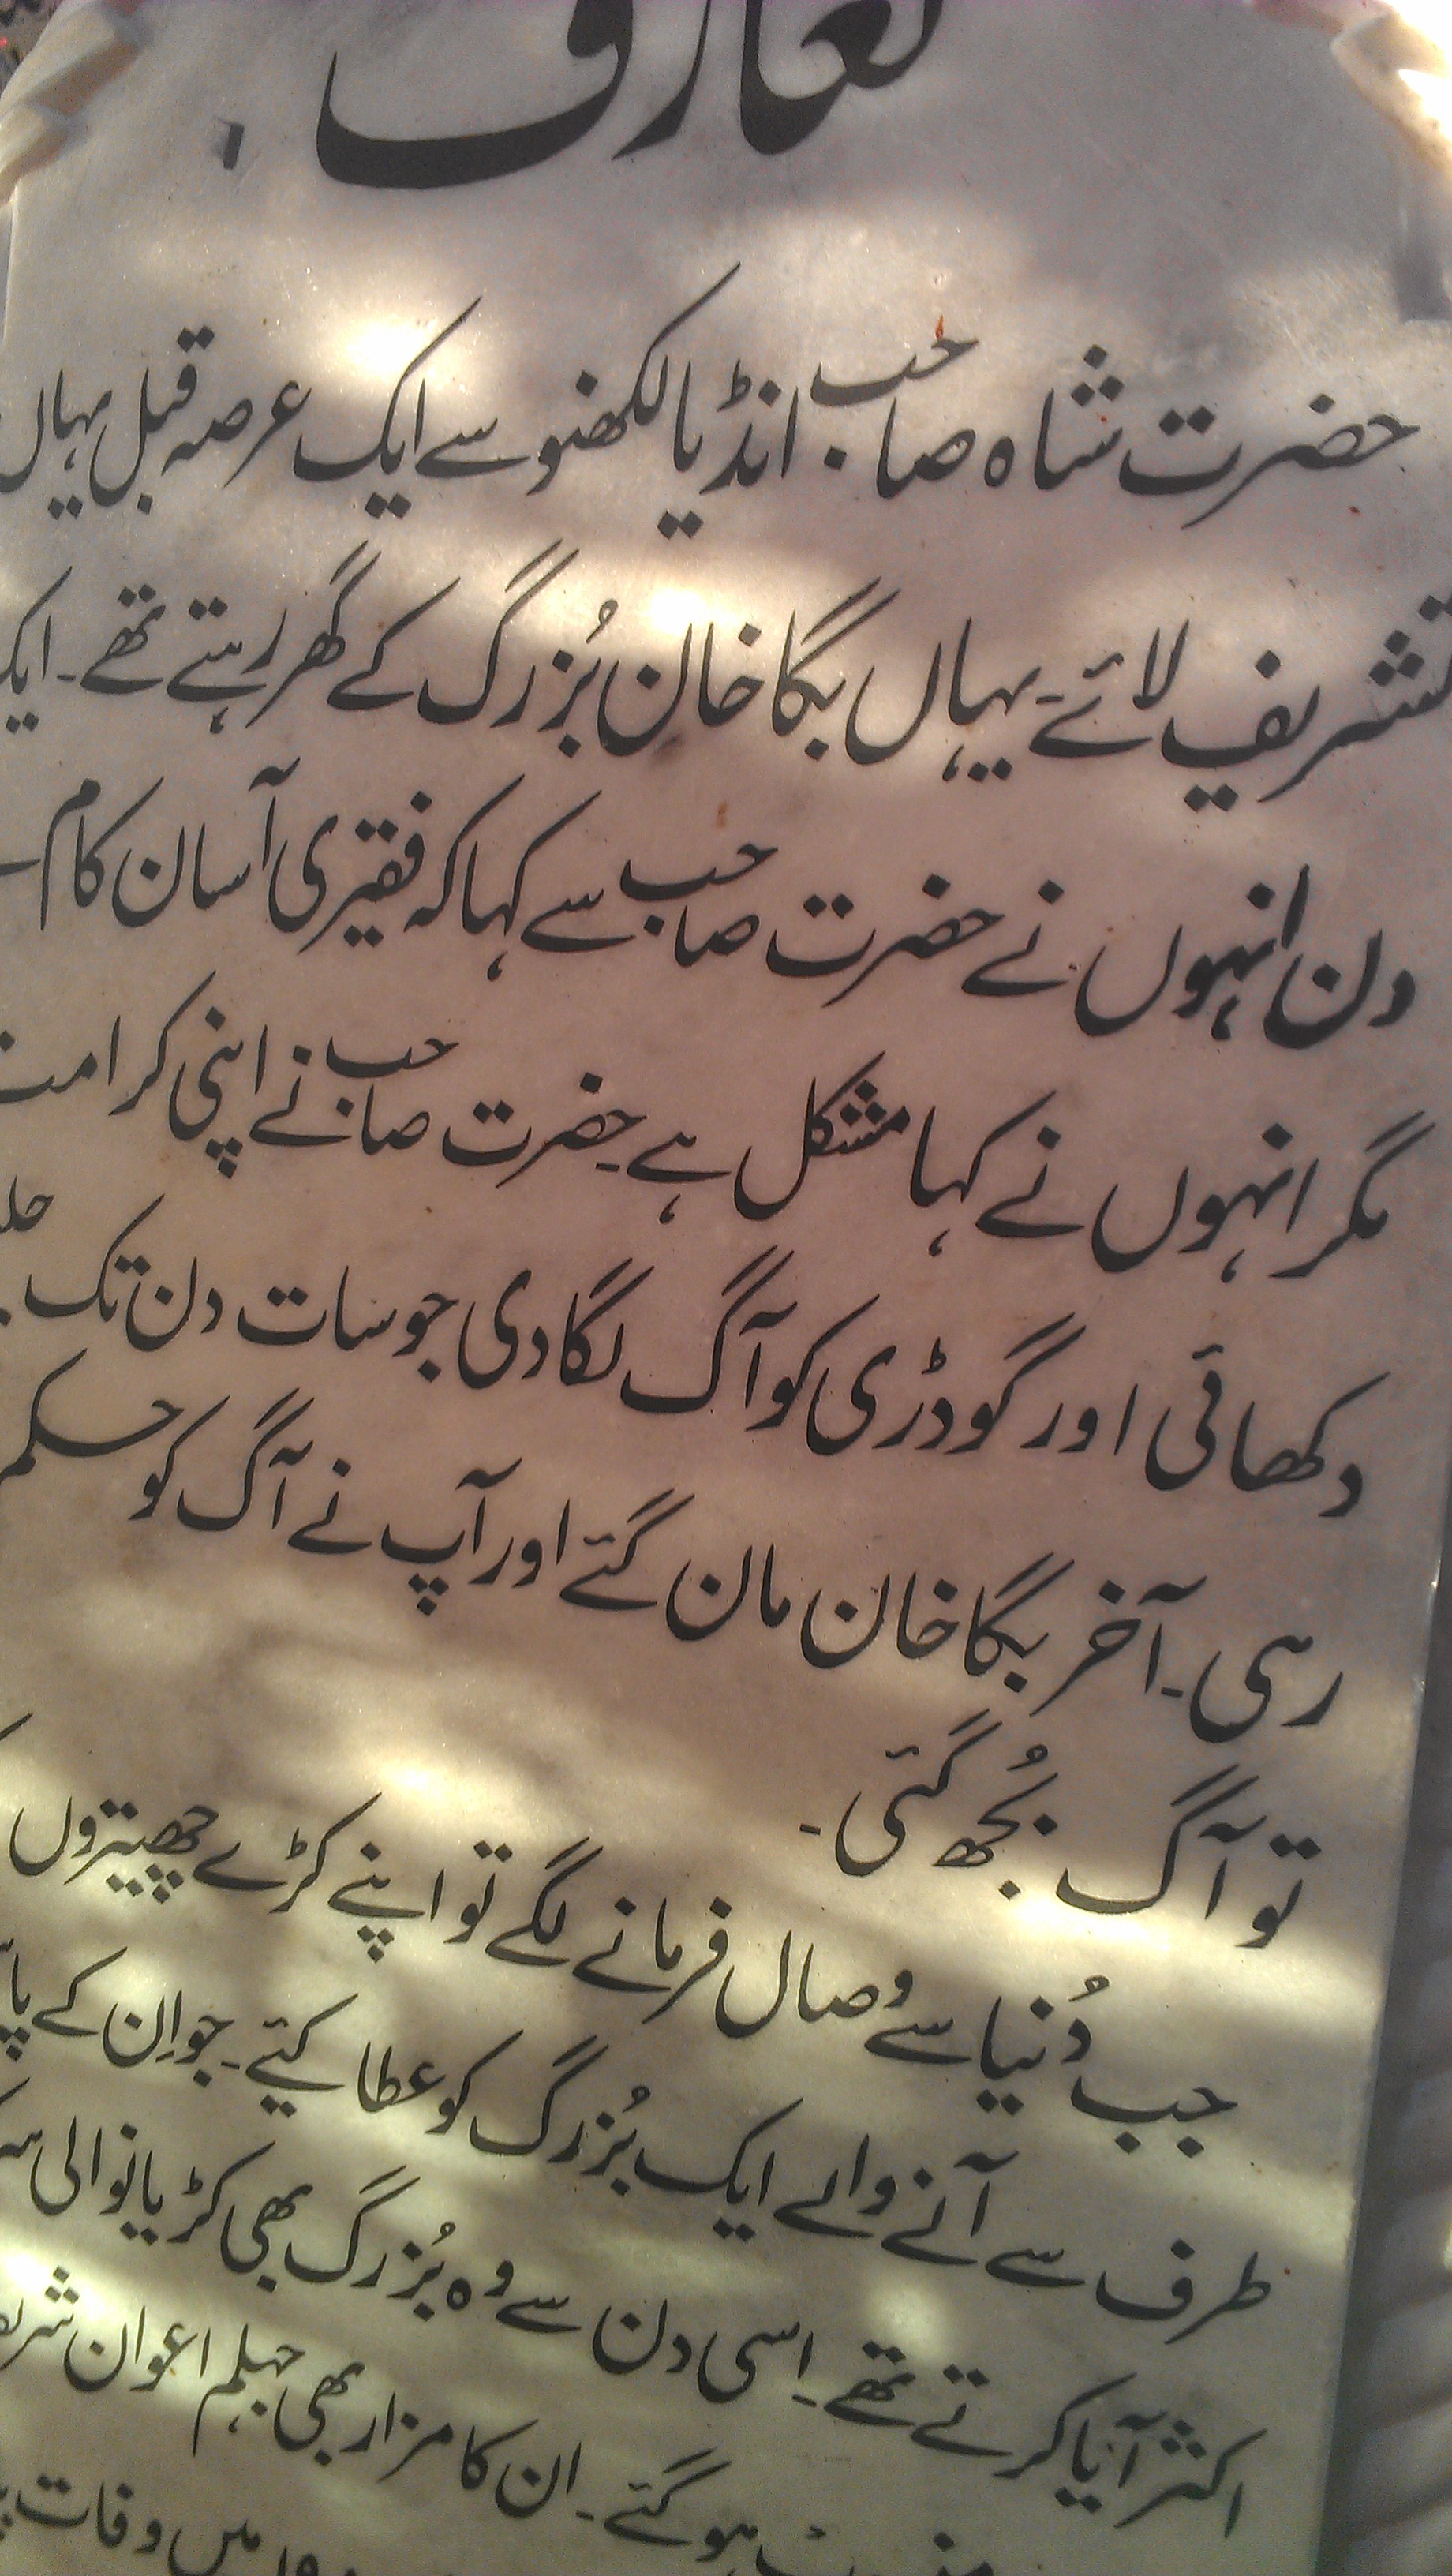 تعارف
حضرت شاہ صاحب انڈیا لکھنو سے ایک عرصہ قبل یہاں
تشریف لائے۔ یہاں بگا خان بُزرگ کے گھر رہتے تھے۔ ایک
دن انہوں نے حضرت صاحب سے کہا کہ فقیری آسان کام
مگر انہوں نے کہا مشکل ہے۔ حضرت صاحب نے اپنی کرامت
دکھائی اور گودڑی کو آگ لگا دی جو سات دن تک
رہی۔ آخر بگا خان مان گئے اور آپ نے آگ کو حکم
تو آگ بُجھ گئی۔
جب دُنیا سے وصال فرمانے لگے تو اپنے کڑے چھیتڑوں
طرف سے آنے والے ایک بُزرگ کو عطا کیئے۔ جو اِن کے پاس
اکثر آیا کرتے تھے۔ اِسی دن سے وہ بُزرگ بھی کڑیانوالی
ہو گئے۔ ان کا مزار بھی جہلم اعوان شریف
میں وفات